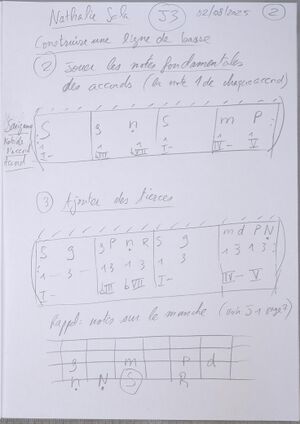 Nathalie Sela J3 02/08/2025 2
Construire une ligne de basse
2 Jouer les notes fondamentales
des accords (la note 1 de chaque accord)
Sargam S g n S m P
Note de l'accord 1 1 1 1 1 1
Accord I- bIII bVII I- IV- V
3 Ajouter des tierces
S g g P n R S g m d P N
1 3 1 3 1 3 1 3 1 3 1 3
I- bIII bVII I- IV- V
Rappel: notes sur le manche (voir J1 page
g m P d
n N S R